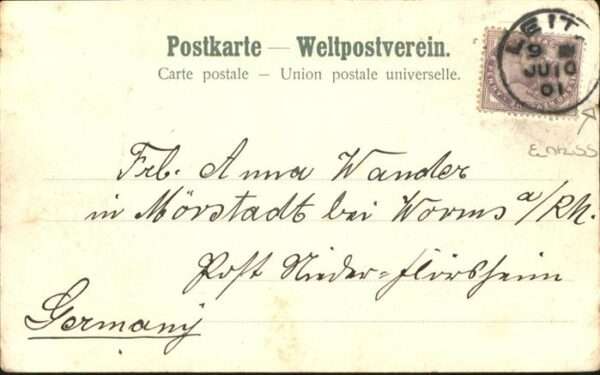 Postkarte — Weltpostverein.
Carte postale – Union postale universelle.
LEIT
9
JU 10
01
Frl. Anna Wander
in Mörstadt bei Worms a/Rh.
Post Nieder=Flörsheim
Germany